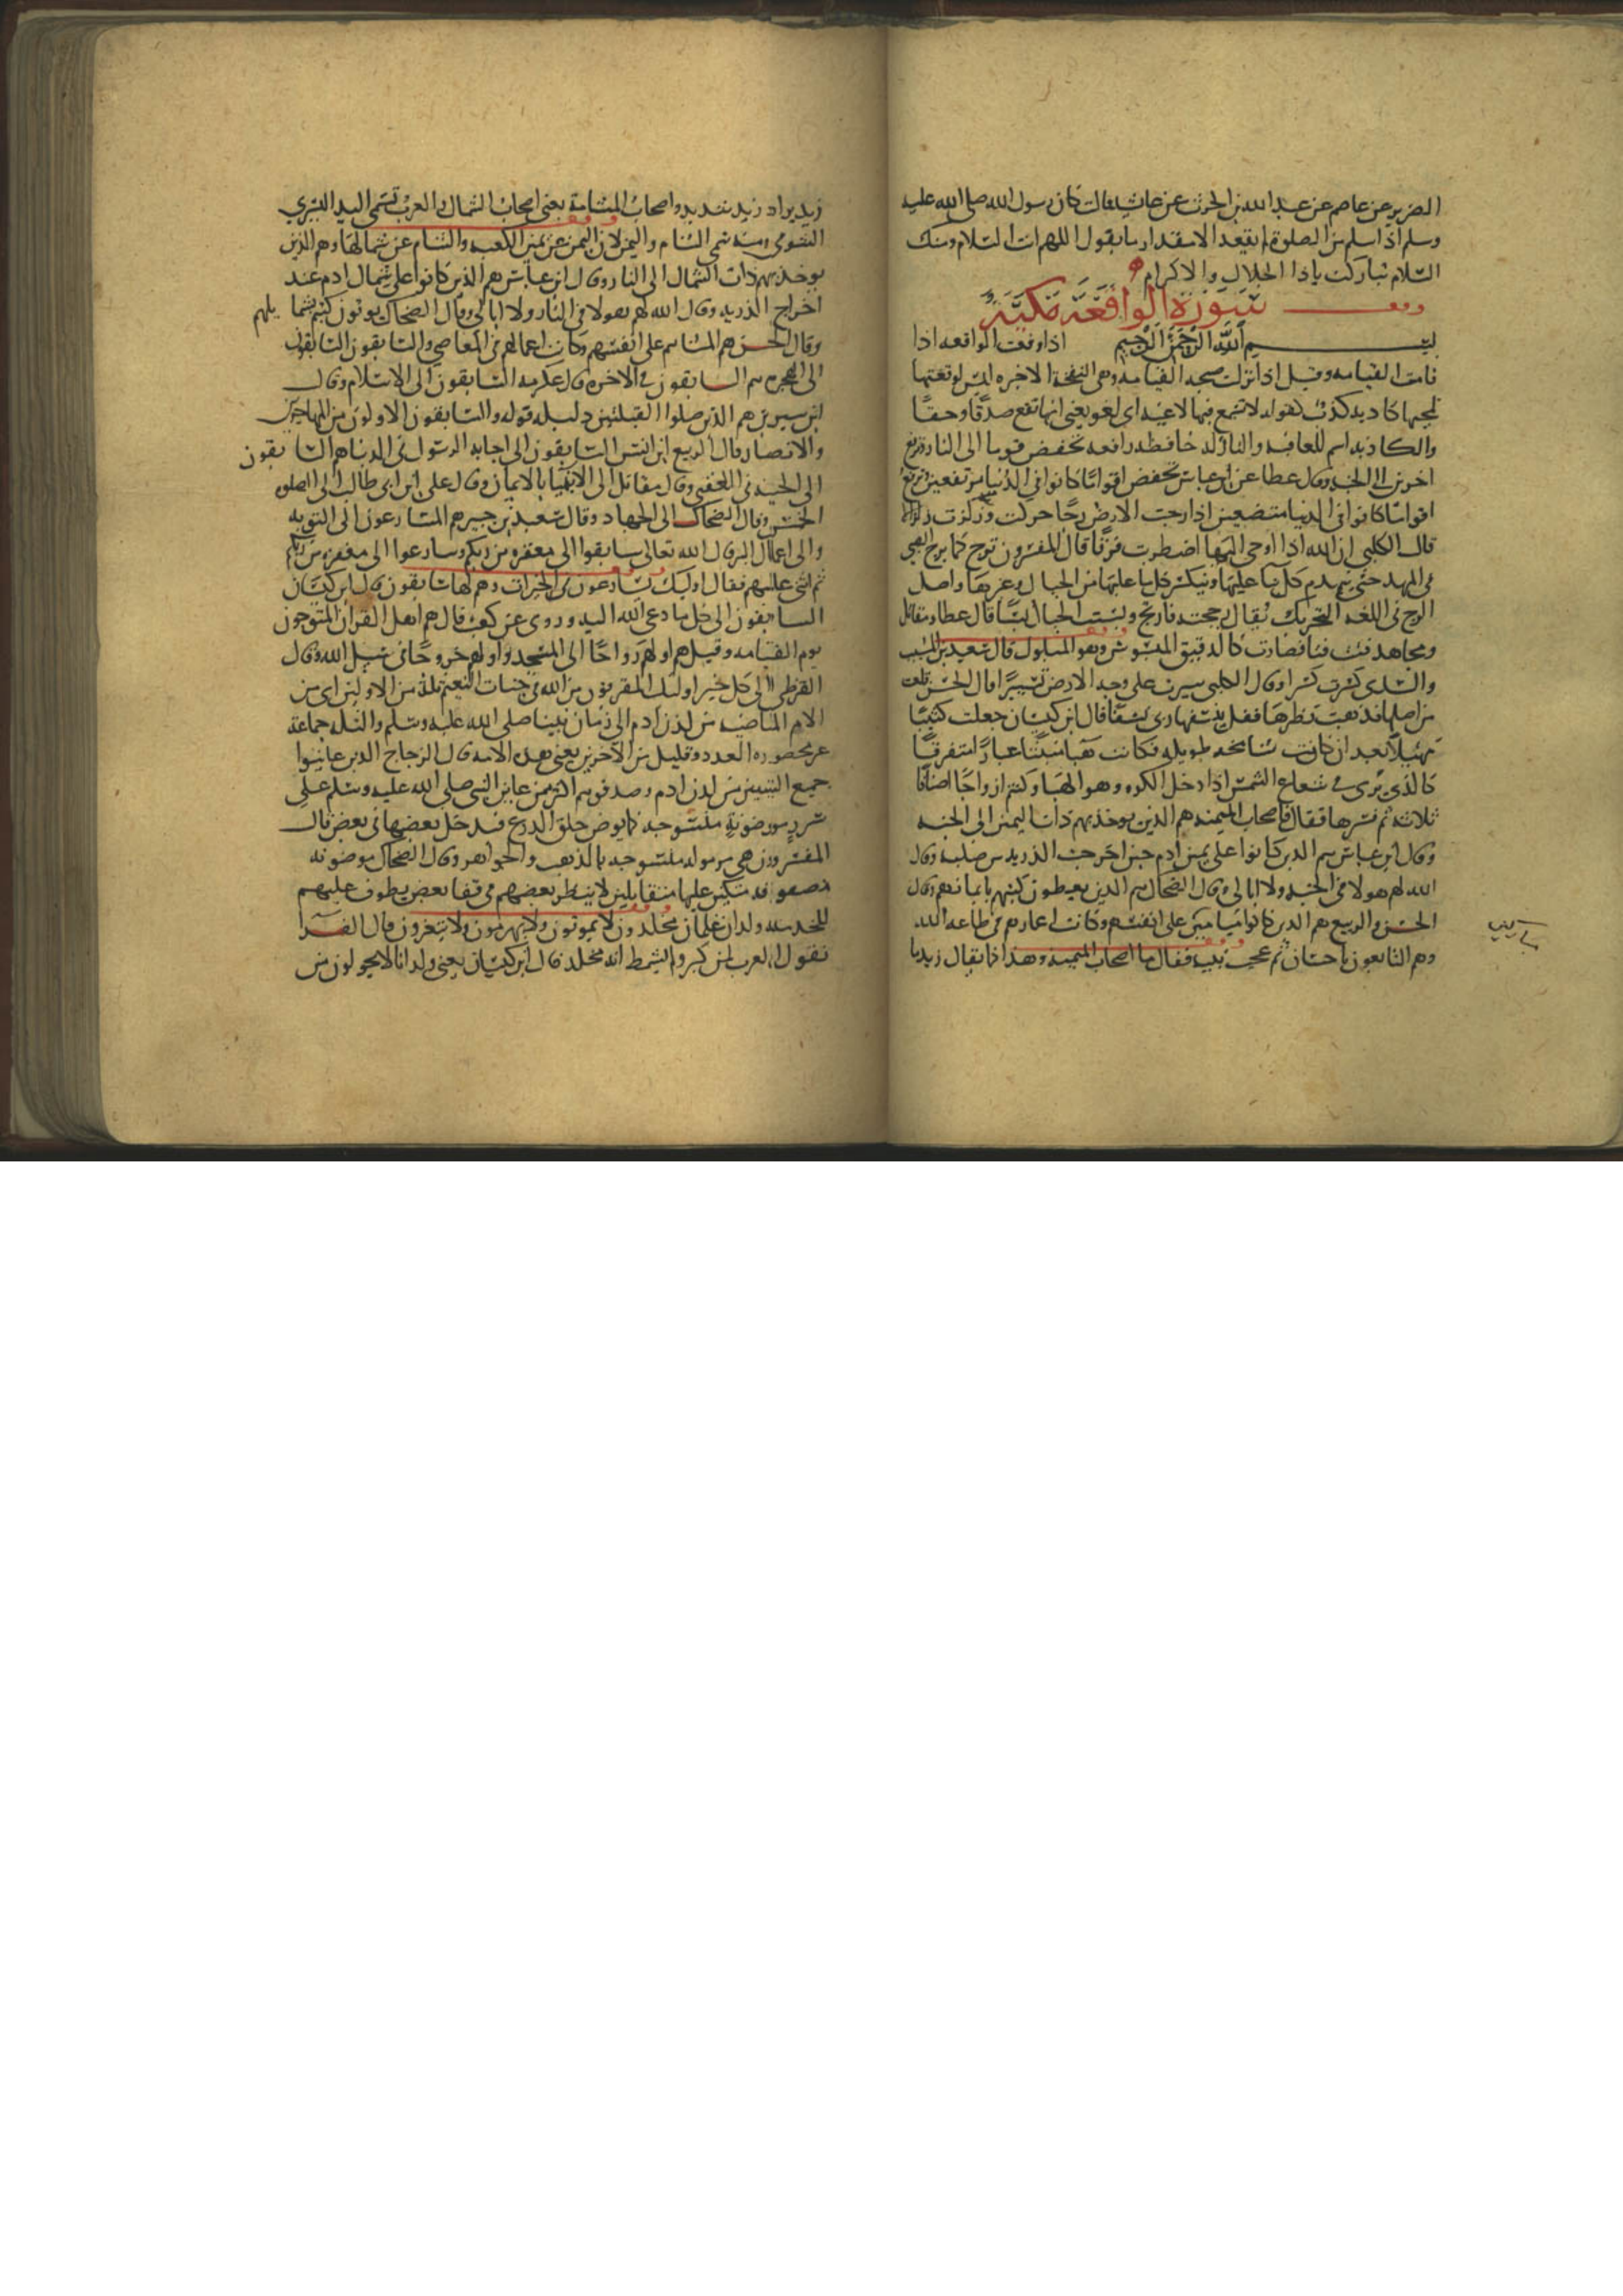 الضرير عن عاصم عن عبد الله بن الحرث عن عائشة قالت كان رسول الله صلى الله عليه
وسلم اذا سلم من الصلوة لم يقعد الا مقدار ما يقول اللهم انت السلام ومنك
السلام تباركت ياذا الجلال والاكرام
سورة الواقعة مكية
بسم الله الرحمن الرحيم اذا وقعت الواقعه اذا
قامت القيامه وقيل اذا نزلت صيحه القيامه وهى النفخة الاخيره ليس لوقعتها
لمجيها كاذبه كذب كقوله لا تسمع فيها لاغيه اى لغو يعنى انها تقع صدقا وحقا
والكاذبه اسم كالعافيه والنازله خافضه رافعه تخفض قوما الى النار وترفع
اخرين الى الجنه وقال عطا عن ابن عباس تخفض اقواما كانوا فى الدنيا مرتفعين وترفع
اقواما كانوا فى الدنيا متضعين اذا رجت الارض رجا حركت وزلزلت زلزالا
قال الكلبى ان الله اذا اوحى اليها اضطربت فرقا قال المفسرون ترج كما يرج الصبى
فى المهد حتى ينهدم كل بنا عليها وينكسر كل ما عليها من الجبال وغيرها واصل
الرج فى اللغه التحريك يقال رججته فارتج وبست الجبال بسا قال عطا ومقاتل
ومجاهد فتت فتا فصارت كالدقيق المبسوس وهو المبلول قال سعيد بن المسيب
والسدى كسرت كسرا وقال الكلبى سيرت على وجه الارض تسييرا قال الحسن قلعت
من اصلها فذهبت نظيرها فقل ينسفها ربى نسفا قال ابن كيسان جعلت كثيبا
مهيلا بعد ان كانت شامخه طويله فكانت هبا منبثا غبارا متفرقا
كالذى يرى فى شعاع الشمس اذا دخل الكوه وهو الهبا وكنتم ازواجا اصنافا
ثلاثه ثم فسرها فقال فاصحاب الميمنه هم الذين يوخذ بهم ذات اليمين الى الجنه
وقال ابن عباس هم الذين كانوا على يمين ادم حين اخرجت الذريه من صلبه وقال
الله لهم هولا فى الجنه ولا ابالى وقال الضحاك هم الذين يعطون كتبهم بايمانهم وقال
الحسن والربيع هم الذين كانوا ميامين على انفسهم وكانت اعمارهم فى طاعه الله
وهم التابعون باحسان ثم عجب نبيه فقال ما اصحاب الميمنه وهذا كما يقال زيد ما
زيد يراد زيد شديد واصحاب المشامة يعنى اصحاب الشمال والعرب تسمى اليد اليسرى
الشومى ومنه سمى الشام واليمن لان اليمن عن يمين الكعبه والشام عن شمالها وهم الذين
يوخذ بهم ذات الشمال الى النار وقال ابن عباس هم الذين كانوا على شمال ادم عند
اخراج الذريه وقال الله لهم هولا فى النار ولا ابالى وقال الضحاك يوتون كتبهم بشمايلهم
وقال الحسن هم المشايم على انفسهم وكانت اعمالهم فى المعاصى والسابقون السابقون
الى الهجره هم السابقون فى الاخره قال عكرمه السابقون الى الاسلام وقال
ابن سيرين هم الذين صلوا القبلتين دليله قوله والسابقون الاولون من المهاجرين
والانصار قال الربيع ابن انس السابقون الى اجابه الرسول فى الدنيا هم السابقون
الى الجنه فى العقبى وقال مقاتل الى الانبيا بالايمان وقال على ابن ابى طالب الى الصلوه
الخمس وقال الضحاك الى الجهاد وقال سعيد بن جبير هم المسارعون الى التوبه
والى اعمال البر قال الله تعالى سابقوا الى مغفره من ربكم وسارعوا الى مغفره من ربكم
ثم اثنى عليهم فقال اوليك يسارعون فى الخيرات وهم لها سابقون قال ابن كيسان
السابقون الى كل ما دعى الله اليه وروى عن كعب قال هم اهل القران المتوجون
يوم القيامه وقيل هم اولهم رواحا الى المسجد واولهم خروجا فى سبيل الله وقال
القرظى الى كل خير اوليك المقربون من الله فى جنات النعيم ثلة من الاولين اى من
الامم الماضيه من لدن ادم الى زمان نبينا صلى الله عليه وسلم والثله جماعة
غير محصوره العدد وقليل من الاخرين يعنى هذه الامه قال الزجاج الذين عاينوا
جميع النبيين من لدن ادم وصدقوهم اكثر ممن عاين النبى صلى الله عليه وسلم على
سرر موضونة منسوجه كما يوضن حلق الدرع فيدخل بعضها فى بعض قال
المفسرون هى مرموله منسوجه بالذهب والجواهر وقال الضحاك موضونه
مصفوفه متكين عليها متقابلين لا ينظر بعضهم فى قفا بعض يطوف عليهم
للخدمه ولدان غلمان مخلدون لا يموتون ولا يهرمون ولا يتغيرون قال الفرا
تقول العرب لمن كبر ولم يشمط انه مخلد قال ابن كيسان يعنى ولدانا لا يحولون من